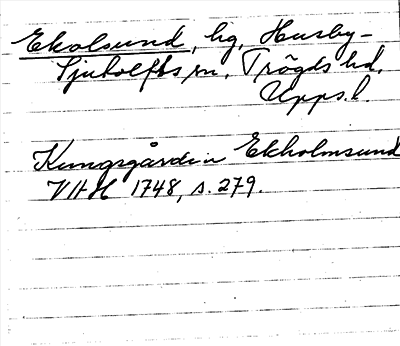 Ekolsund, hg, Husby-
Sjutolfts sn, Trögds hd.
Upps. l.
Kungsgården Ekholmsund
VHH 1748, s. 279.